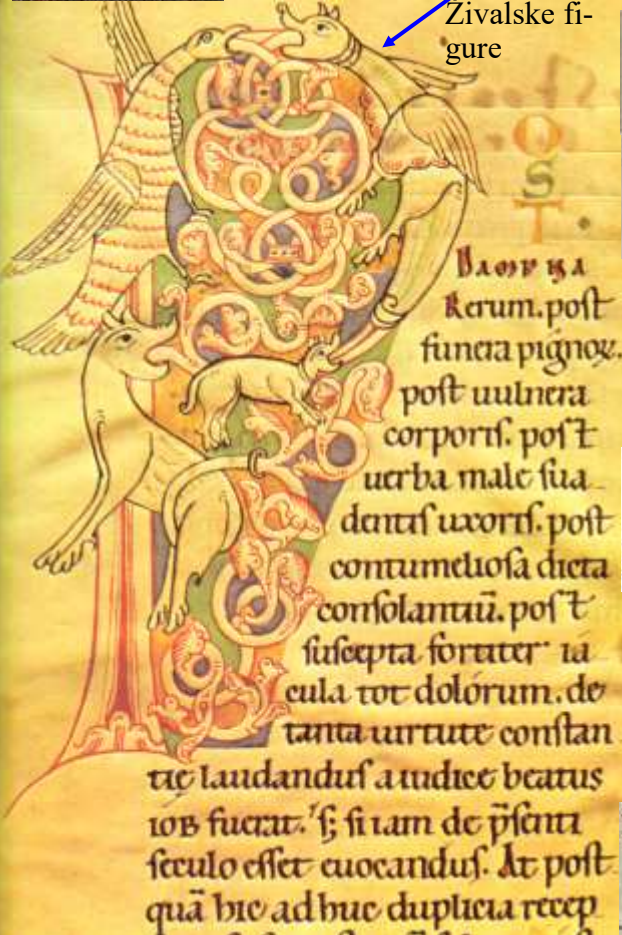 Živalske fi-
gure
O
S
T
DAMPNA
Rerum. post
funera pignoꝝ.
post uulnera
corporis. post
uerba male sua
dentis uxoris. post
contumeliosa dicta
consolantiū. post
suscepta fortiter ia
cula tot dolorum. de
tanta uirtute constan
tię laudandus a iudice beatus
IOB fuerat. s; si iam de p̄senti
seculo esset euocandus. At post
quā hic ad huc duplicia recep